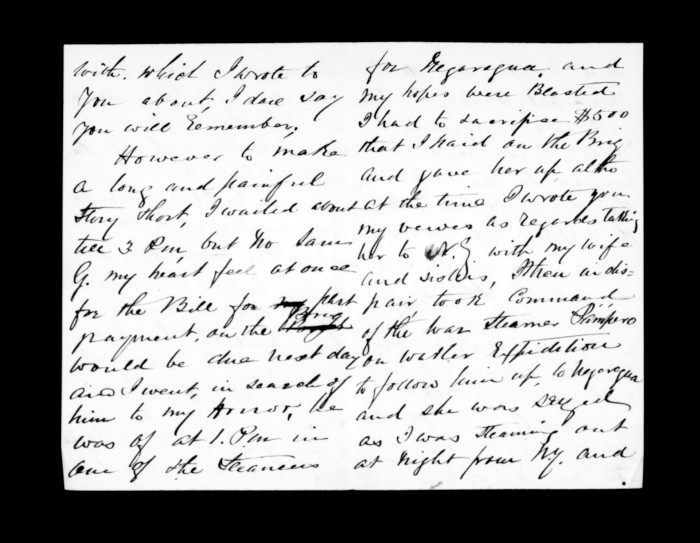 with. which I wrote to
You about, I dare say
you will Remember.
However to make
a long and painful
Story Short, I waited about
till 3 P.m, but No Sam
G. my heart feel at once
for the Bill for my part
payment, on the Brig
would be due next day
and I went, in search of
him to my Horror, he
was of at 1. P.m in
One of the Steamers
for Negaragua, and
my hopes were Blasted
I had to sacrifise $500
that I paid on the Brig
and gave her up, altho
at the time I wrote you
my vewes as regards taking
her to N.Z with my wife
and sisters, I then in dis=
pair took Command
of the war Steamer Pampero
on Walker Expidition
to follow him up, to Negaragua
and she was Seized
as I was Steaming out
at Night from N.Y. and